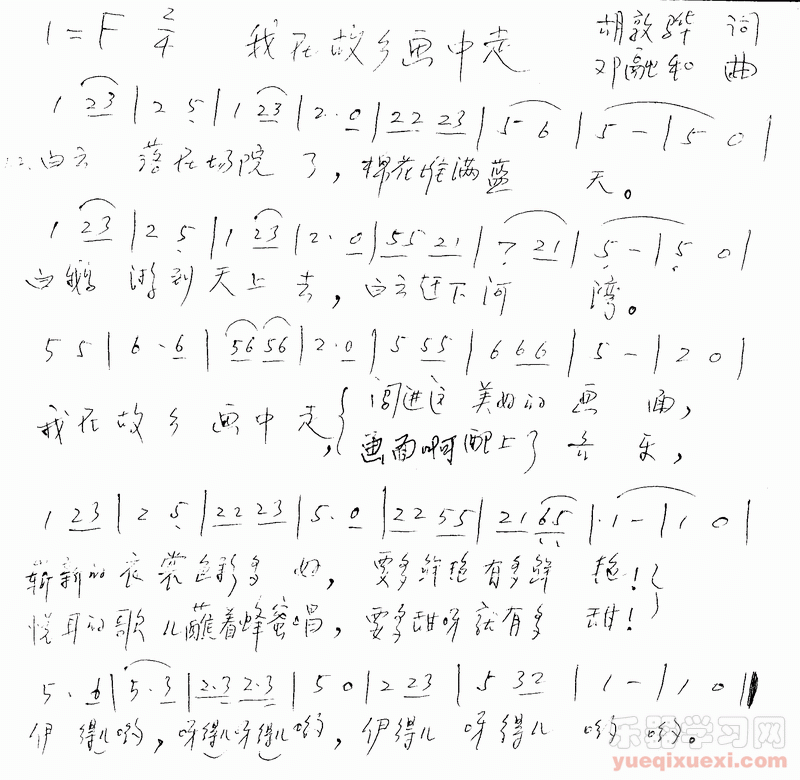 1=F 2/4 我在故乡画中走 胡敦骅 词
邓融和 曲
1 23 | 2 5 | 1 23 | 2· 0 | 22 23 | 5 6 | 5 - | 5 0 |
1.2.白云 落在场院 了，棉花堆满蓝 天。
1 23 | 2 5 | 1 23 | 2· 0 | 55 21 | 7 21 | 5 - | 5 0 |
白鹅 游到天上 去，白云迁下河 湾。
5 5 | 6·6 | 56 56 | 2·0 | 5 55 | 6 66 | 5 - | 2 0 |
我在故乡 画中走，{闯进这 美好的 画 面，
画面啊配上了 音 乐，
1 23 | 2 5 | 22 23 | 5·0 | 22 55 | 21 65 | 1 - | 1 0 |
崭新的衣裳色彩多 好，要多鲜艳有多鲜 艳！}
悦耳的歌儿蘸着蜂蜜唱，要多甜呀就有多 甜！
5·6 | 5·3 | 2·3 2·3 | 5 0 | 2 23 | 5 32 | 1 - | 1 0 ‖
伊 得儿哟，呀得儿呀得儿哟，伊得儿 呀得儿 哟 哟。
乐器学习网
yueqixuexi.com